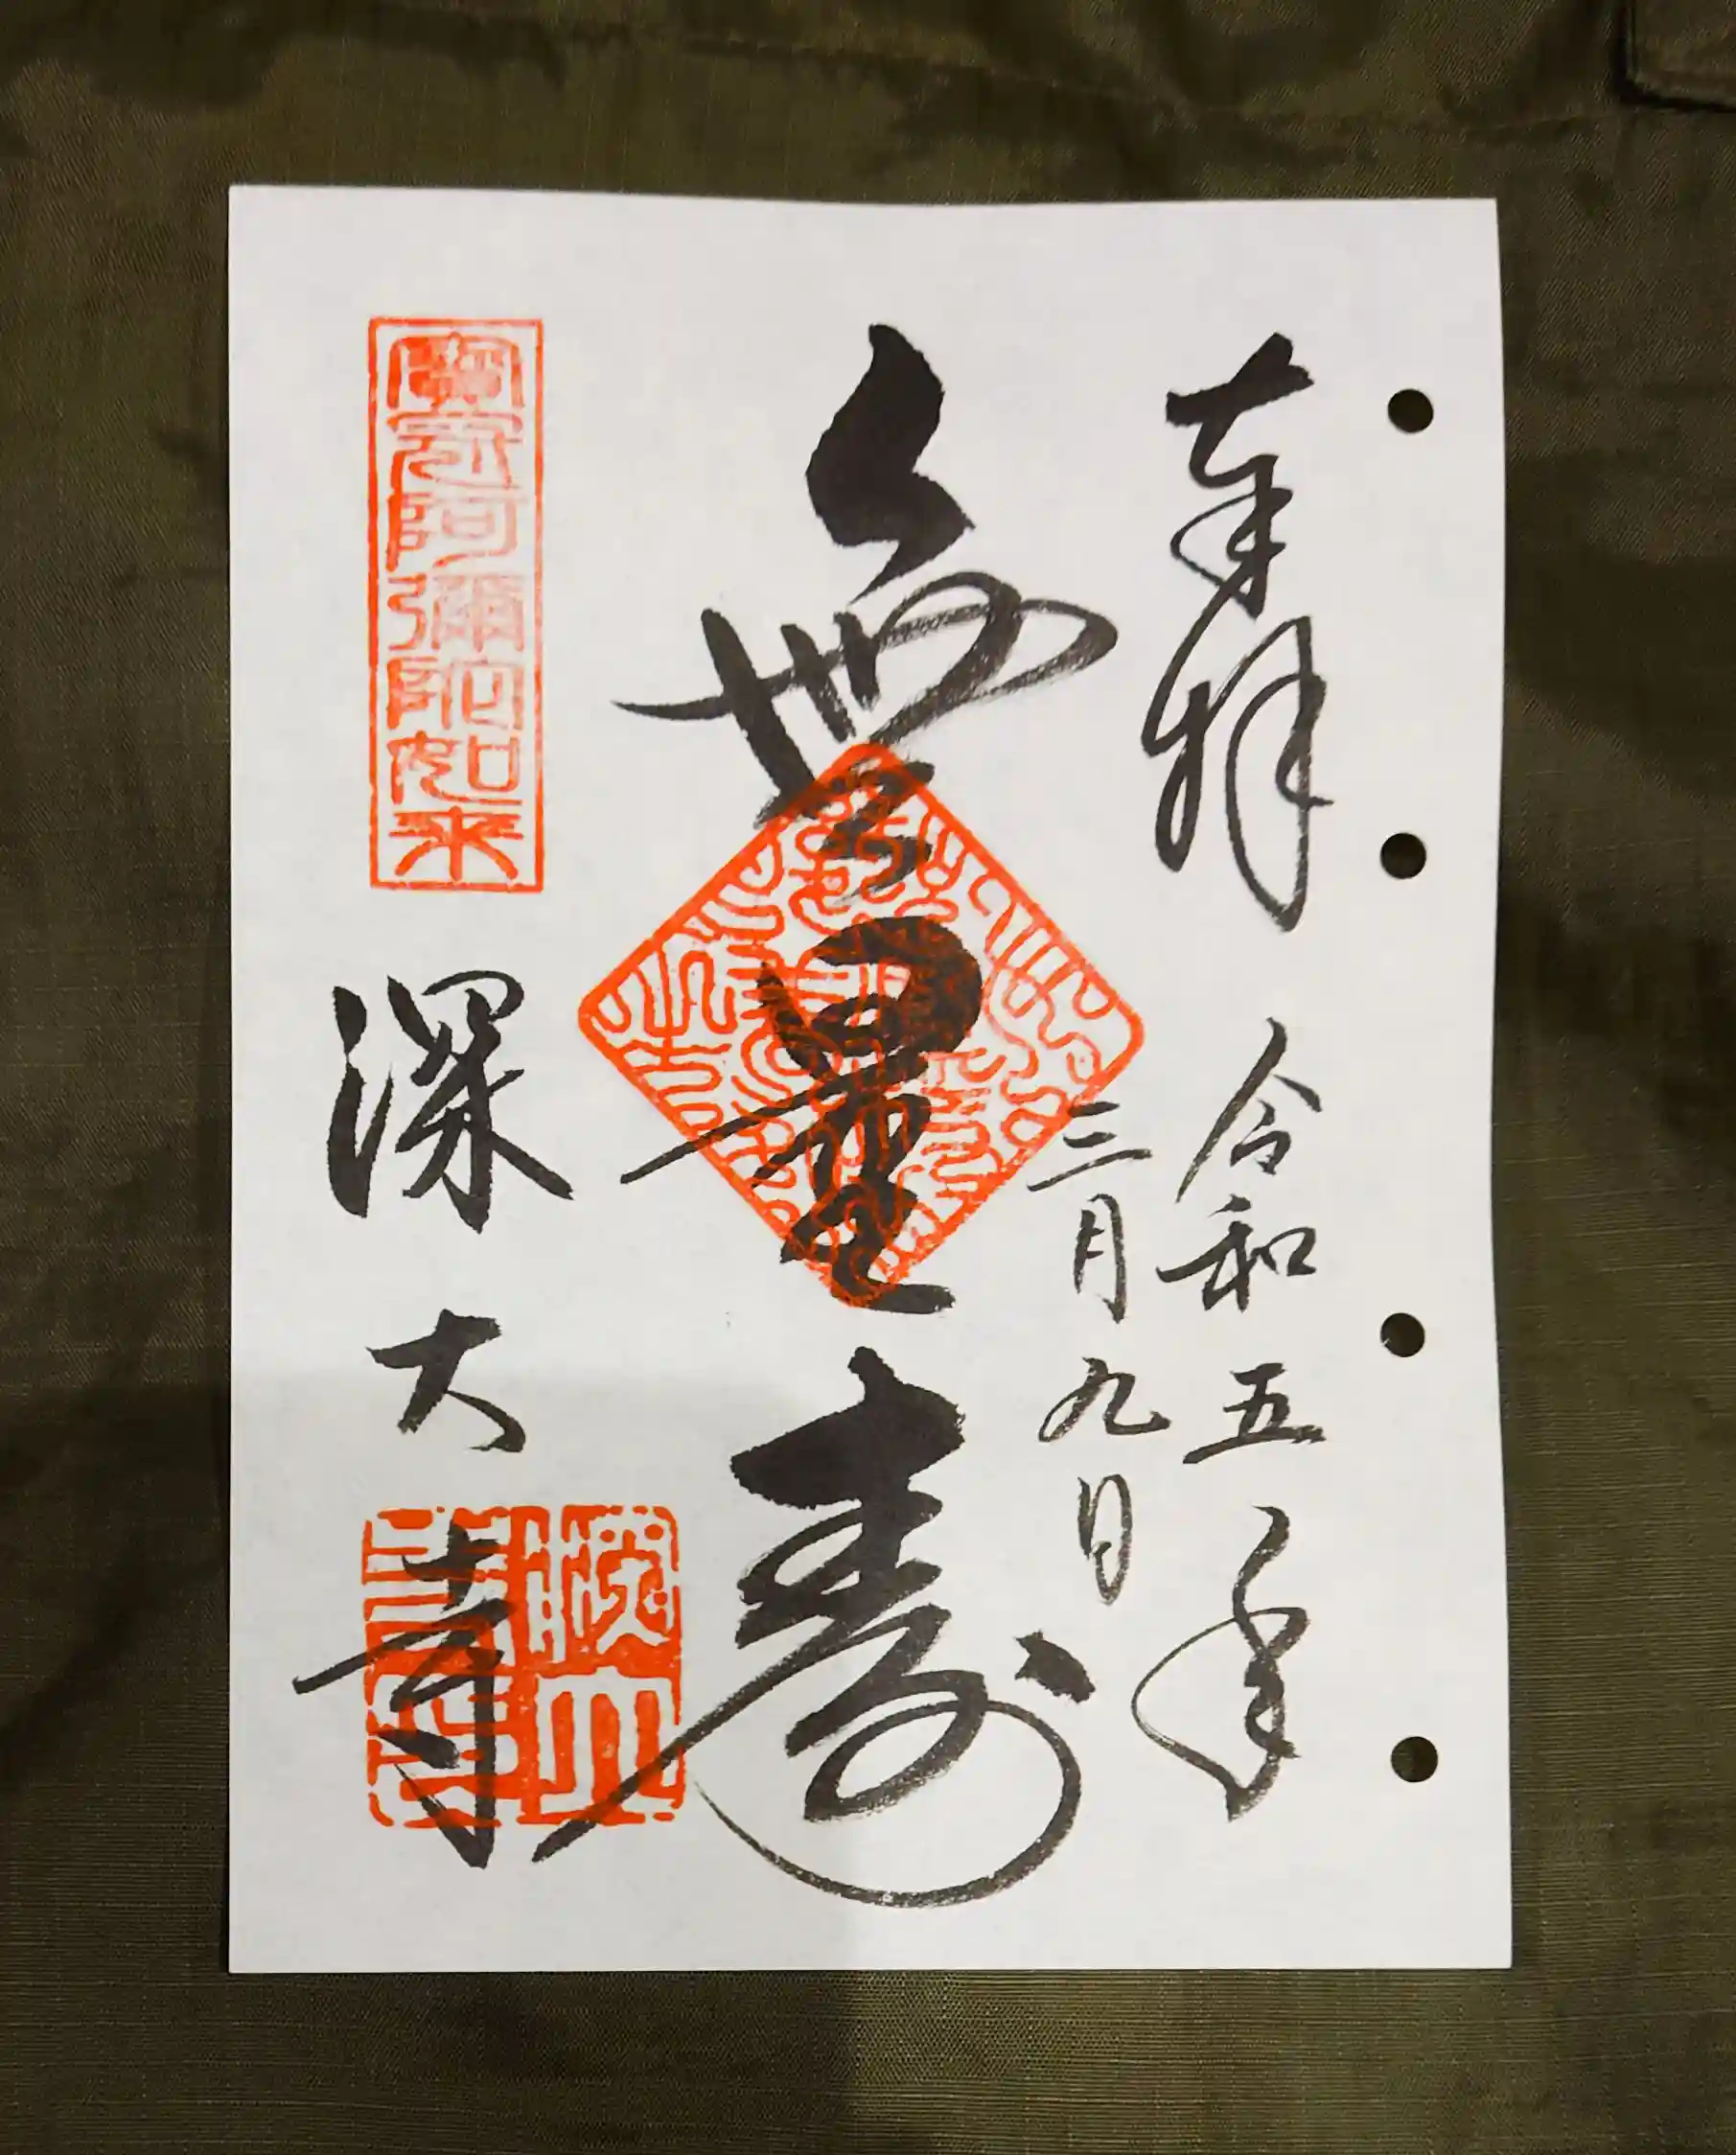 奉拝
令和五年
三月九日
無量寿
寶冠阿彌陀如来
深大寺
深大寺